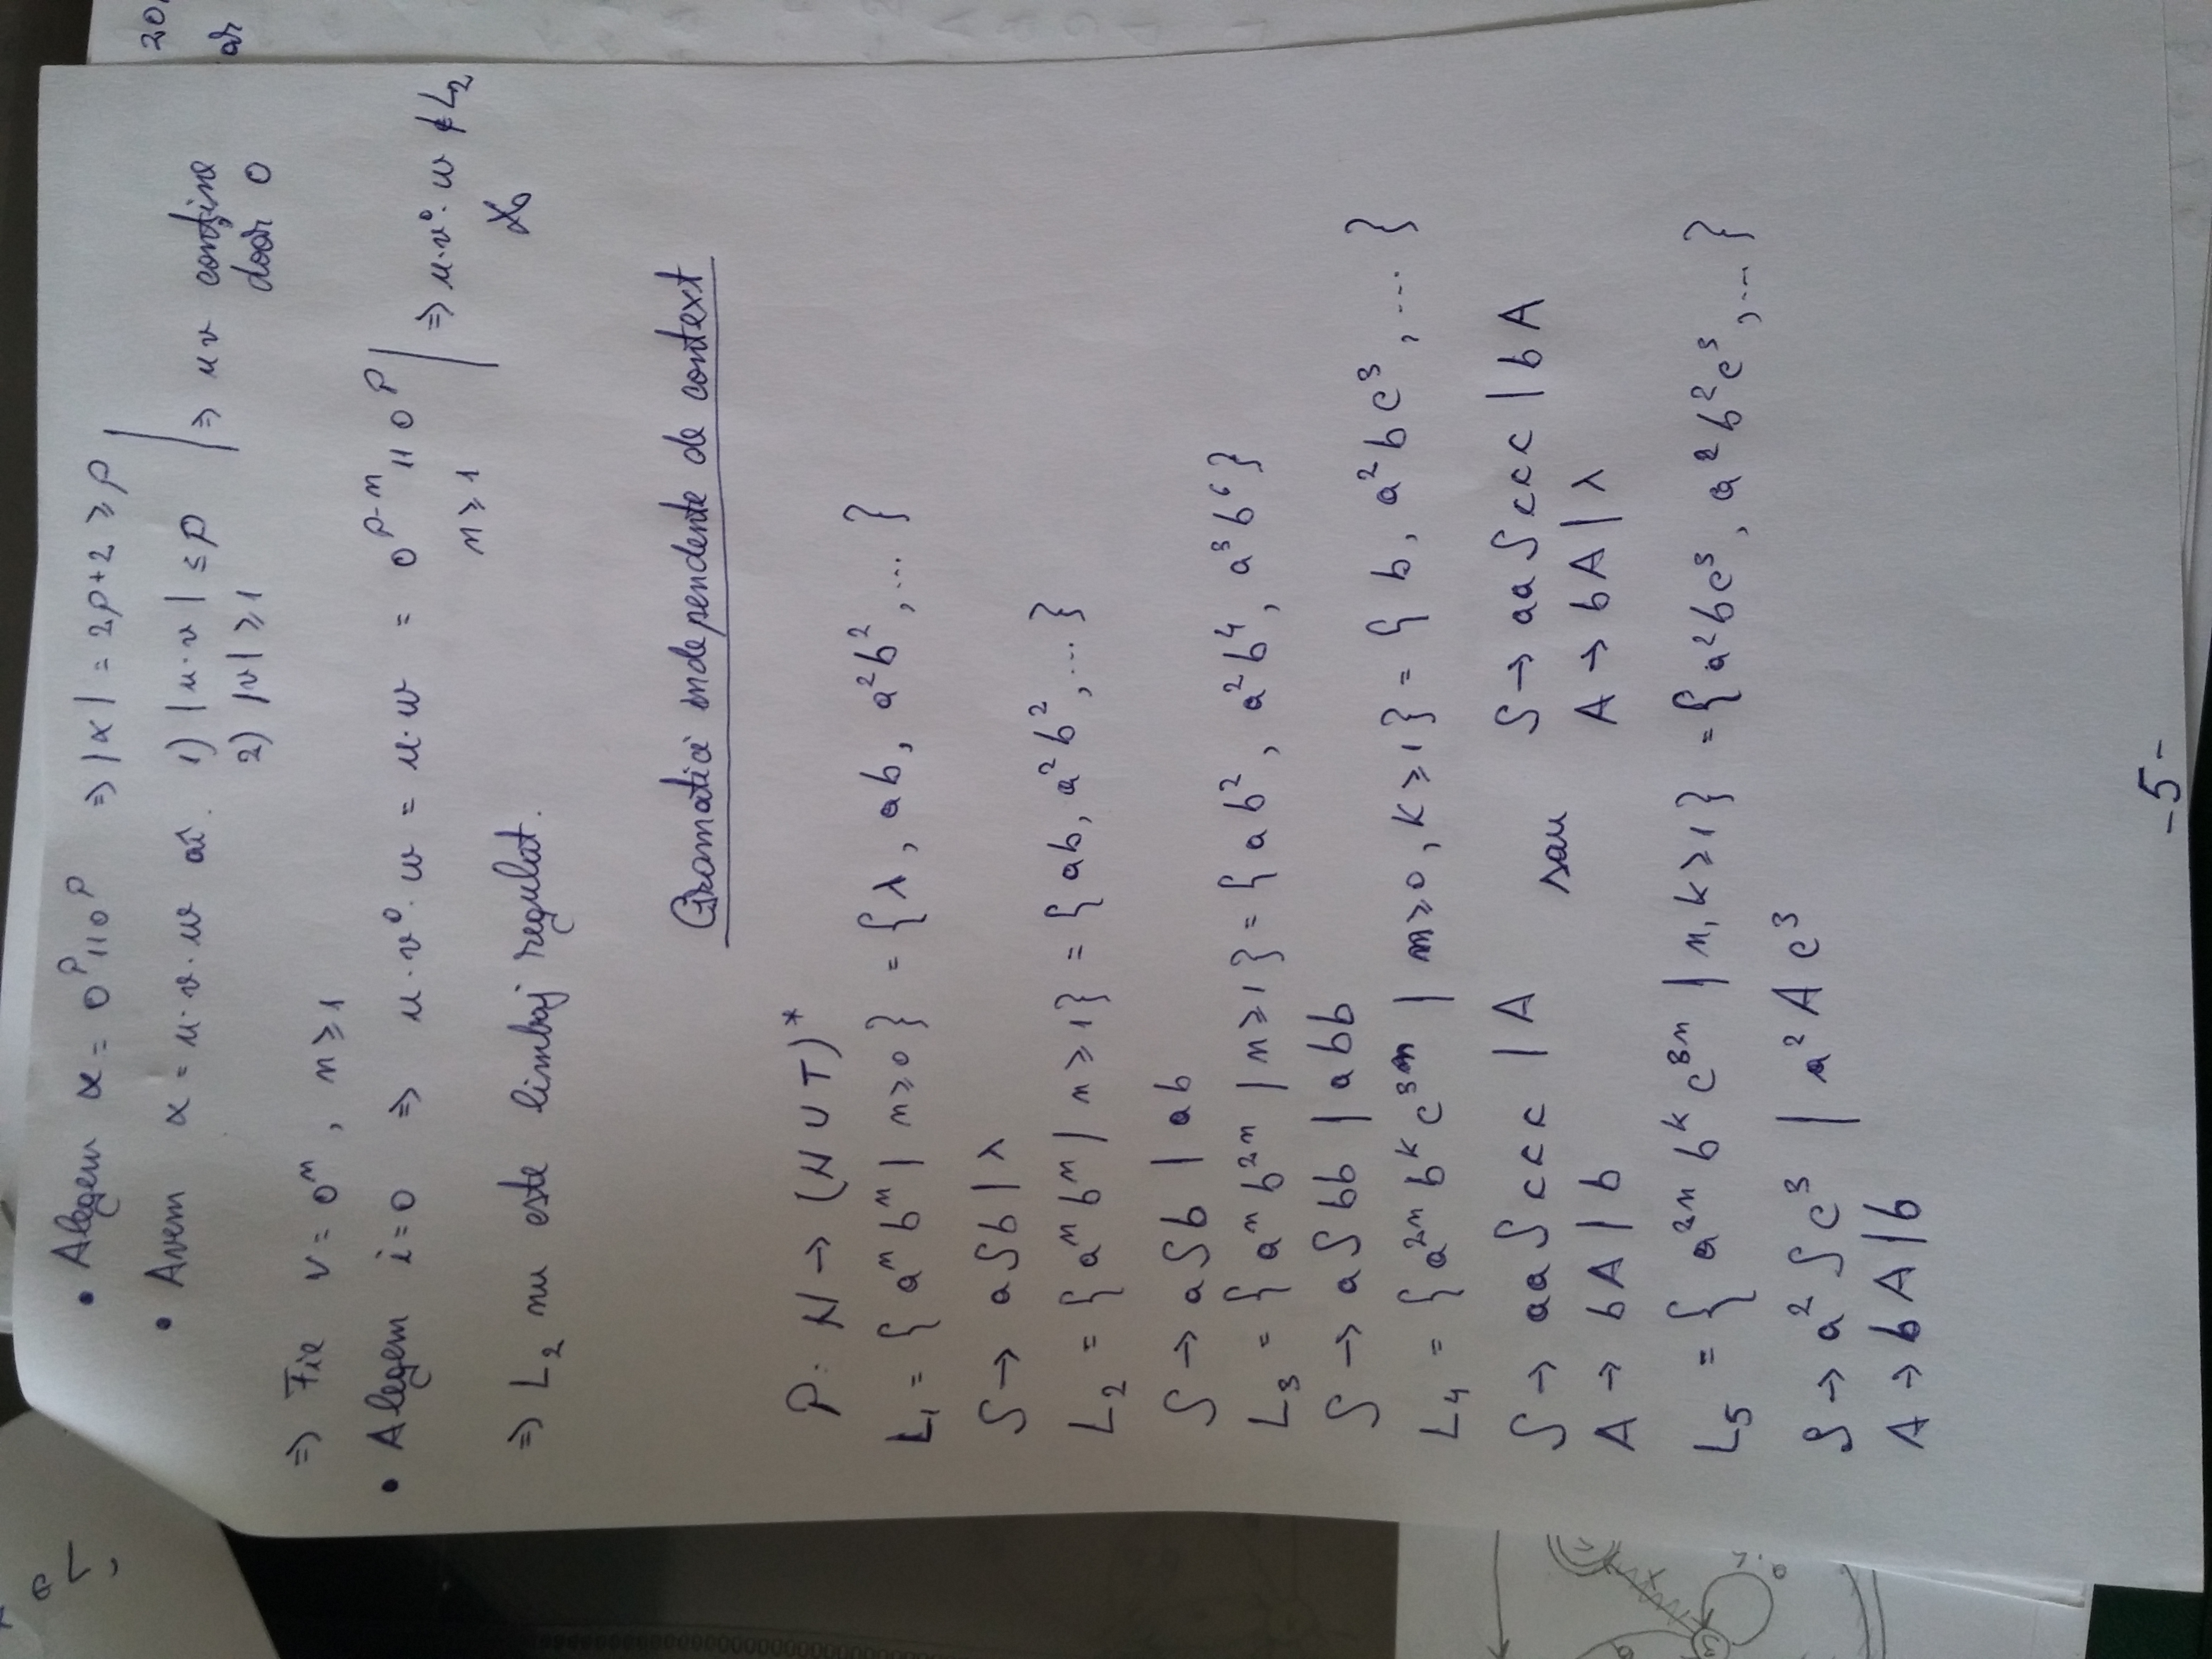 • Alegem α = 0^p 110^p ⇒ |α| = 2p+2 ≥ p
• Avem α = u·v·w aî. 1) |u·v| ≤ p
2) |v| ≥ 1
⇒ uv conține
doar 0
⇒ Fie v = 0^n, n ≥ 1
• Alegem i=0 ⇒ u·v^0·w = u·w = 0^(p-n) 11 0^p
n ≥ 1
⇒ u·v^0·w ∉ L2
⇒ L2 nu este limbaj regulat.
Gramatici independente de context
P: N → (N ∪ T)*
L1 = { a^n b^n | n ≥ 0 } = { λ, ab, a^2 b^2, ... }
S → aSb | λ
L2 = { a^n b^n | n ≥ 1 } = { ab, a^2 b^2, ... }
S → aSb | ab
L3 = { a^n b^2n | n ≥ 1 } = { ab^2, a^2 b^4, a^3 b^6 }
S → aSbb | abb
L4 = { a^2n b^k c^3n | n ≥ 0, k ≥ 1 } = { b, a^2 b c^3, ... }
S → aaSccc | A sau S → aaSccc | bA
A → bA | b A → bA | λ
L5 = { a^2n b^k c^3n | n, k ≥ 1 } = { a^2 b c^3, a^2 b^2 c^3, ... }
S → a^2 S c^3 | a^2 A c^3
A → bA | b
-5-